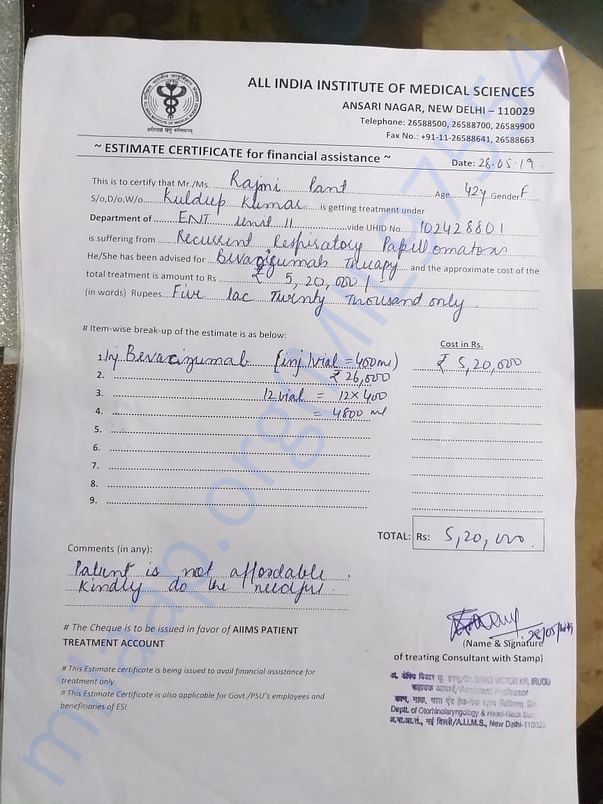 ALL INDIA INSTITUTE OF MEDICAL SCIENCES
ANSARI NAGAR, NEW DELHI – 110029
Telephone: 26588500, 26588700, 26589900
Fax No.: +91-11-26588641, 26588663
~ ESTIMATE CERTIFICATE for financial assistance ~ Date: 28.05.19.
This is to certify that Mr./Ms. Rajni Pant Age 42y Gender F
S/o,D/o,W/o Kuldeep Kumar is getting treatment under
Department of ENT Unit II vide UHID No 102428801
is suffering from Recurrent Respiratory Papillomatosis
He/She has been advised for Bevacizumab Therapy and the approximate cost of the
total treatment is amount to Rs ₹ 5,20,000/
(in words) Rupees Five lac Twenty Thousand only.
# Item-wise break-up of the estimate is as below:
Cost in Rs.
1. Inj Bevacizumab (inj 1vial = 400ml) ₹ 5,20,000
2. ₹ 26,000
3. 12 vial = 12×400
4. = 4800 ml
5.
6.
7.
8.
9.
TOTAL: Rs: 5,20,000.
Comments (in any):
Patient is not affordable.
Kindly do the needful.
# The Cheque is to be issued in favor of AIIMS PATIENT
TREATMENT ACCOUNT
28/05/2019
(Name & Signature
of treating Consultant with Stamp)
# This Estimate certificate is being issued to avail financial assistance for
treatment only.
# This Estimate Certificate is also applicable for Govt./PSU's employees and
beneficiaries of ESI
VICTOR KR. IRUGU
सहायक आचार्य/Assistant Professor
Deptt. of Otorhinolaryngology & Head-Neck
अ.भा.आ.सं., नई दिल्ली/A.I.I.M.S., New Delhi-110029